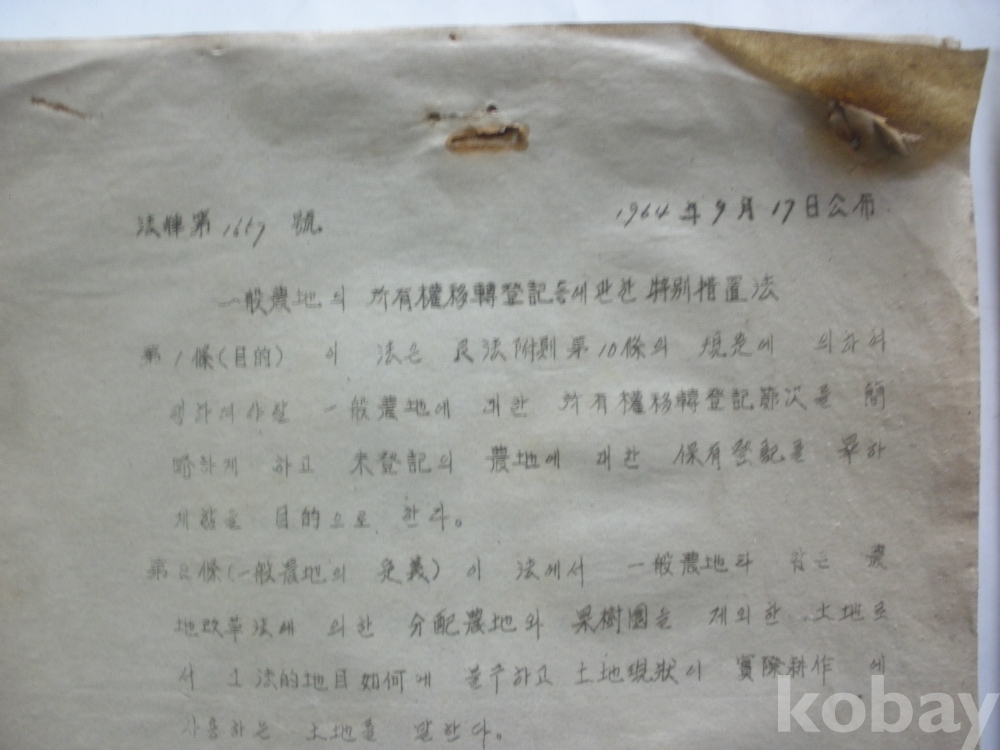 法律第1667 號. 1964 年 9 月 17日公布
一般農地의 所有權移轉登記等에관한 特別措置法
第1條(目的) 이 法은 民法附則第10條의 規定에 의하여
一般農地에 대한 所有權移轉登記節次를 簡
略하게 하고 未登記의 農地에 대한 保有登記를 畢하
게함을 目的으로 한다.
第2條(一般農地의 定義) 이 法에서 一般農地라 함은 農
地改革法에 의한 分配農地와 果樹園을 제외한 土地로
서 그 法的地目如何에 불구하고 土地現狀이 實際耕作에
사용하는 土地를 말한다.
kobay